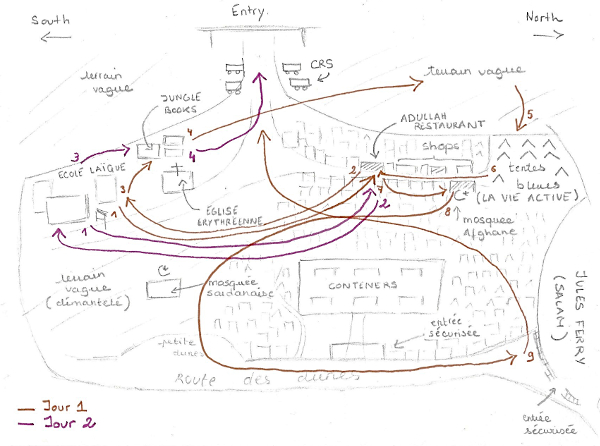 Entry.
South
North
CRS
terrain
vague
terrain vague
JUNGLE
BOOKS
ADULLAH
RESTAURANT
4
5
3
4
shops
ECOLE LAÏQUE
2
6
tentes
bleues
(LA VIE ACTIVE)
3
7
1
1
2
8
EGLISE
ERYTHRÉENNE
mosquee
Afghane
terrain
vague
(démantelé)
mosquee
soudanaise
CONTENERS
JULES FERRY
(SALAM)
petite
dunes
entrée
sécurisée
9
Route des dunes
Jour 1
Jour 2
entrée
sécurisée